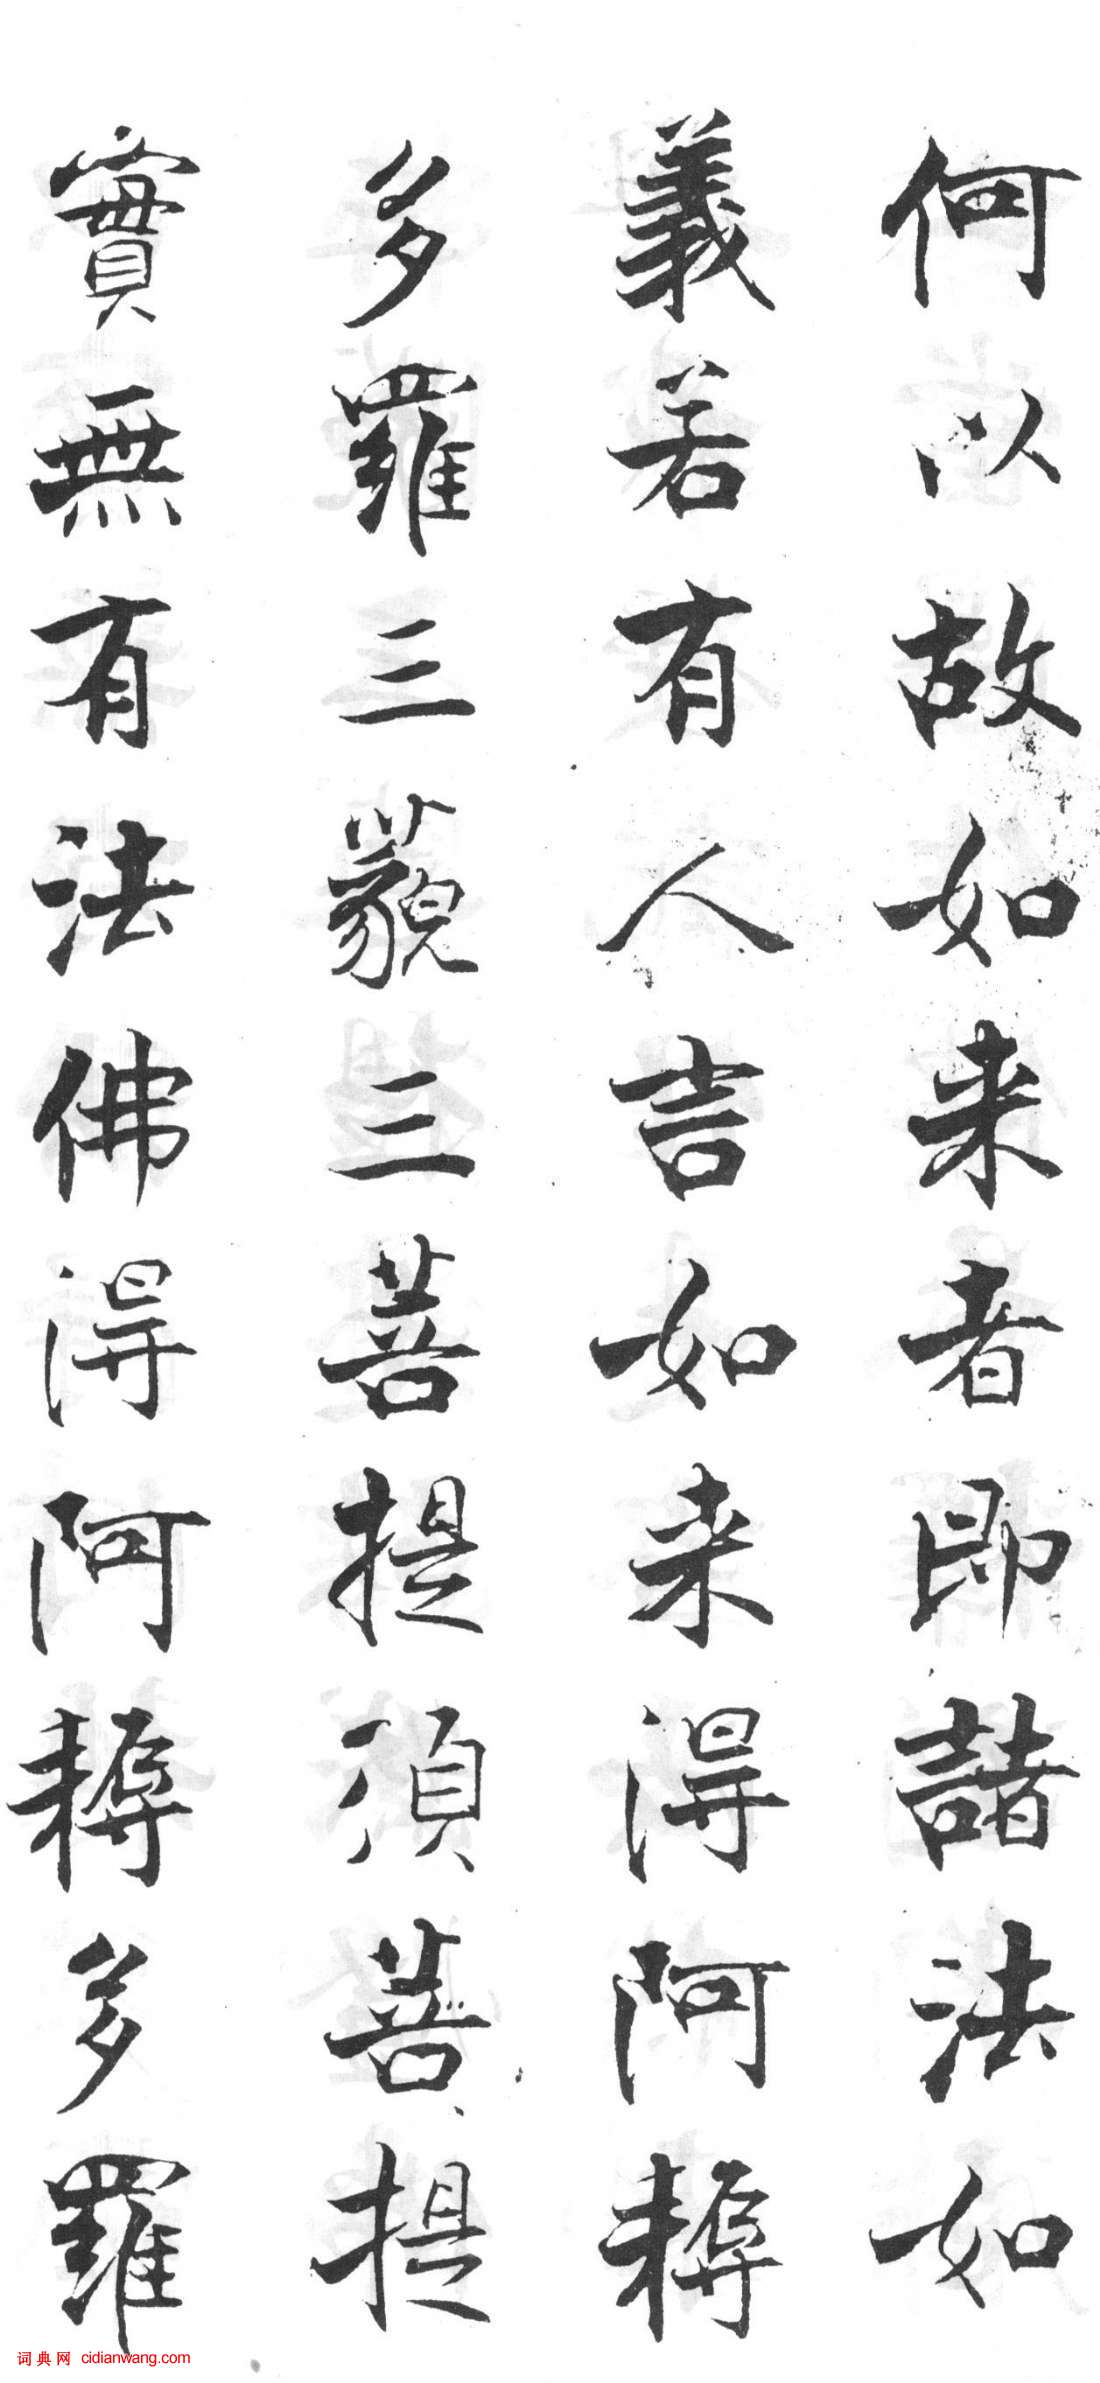 何以故如来者即諸法如
義若有人言如来得阿耨
多羅三藐三菩提須菩提
實無有法佛得阿耨多羅
词典网 cidianwang.com